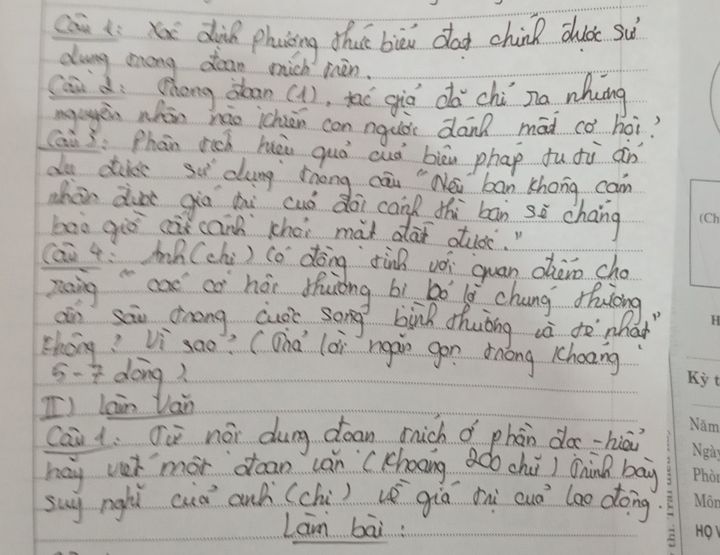 Câu 1: Xác định phương thức biểu đạt chính được sử
dụng trong đoạn trích trên.
Câu 2: Trong đoạn (1), tác giả đã chỉ ra những
nguyên nhân nào khiến con người đánh mất cơ hội?
Câu 3: Phân tích hiệu quả của biện pháp tu từ ẩn
dụ được sử dụng trong câu "Nếu bạn không cảm
nhận được giá trị của đôi cánh thì bạn sẽ chẳng
bao giờ cất cánh khỏi mặt đất được."
Câu 4: Anh (chị) có đồng tình với quan điểm cho
rằng "các cơ hội thường bị bỏ lỡ chúng thường
ẩn sâu trong cuộc sống bình thường và tẻ nhạt"
không? Vì sao? (Trả lời ngắn gọn trong khoảng
5-7 dòng)
II) Làm Văn
Câu 1: Từ nội dung đoạn trích ở phần đọc - hiểu
hãy viết một đoạn văn (khoảng 200 chữ) trình bày
suy nghĩ của anh (chị) về giá trị của lao động.
Làm bài:
(Ch
H
Kỳ t
Năm
Ngày
Phòn
Môn
HỌ V